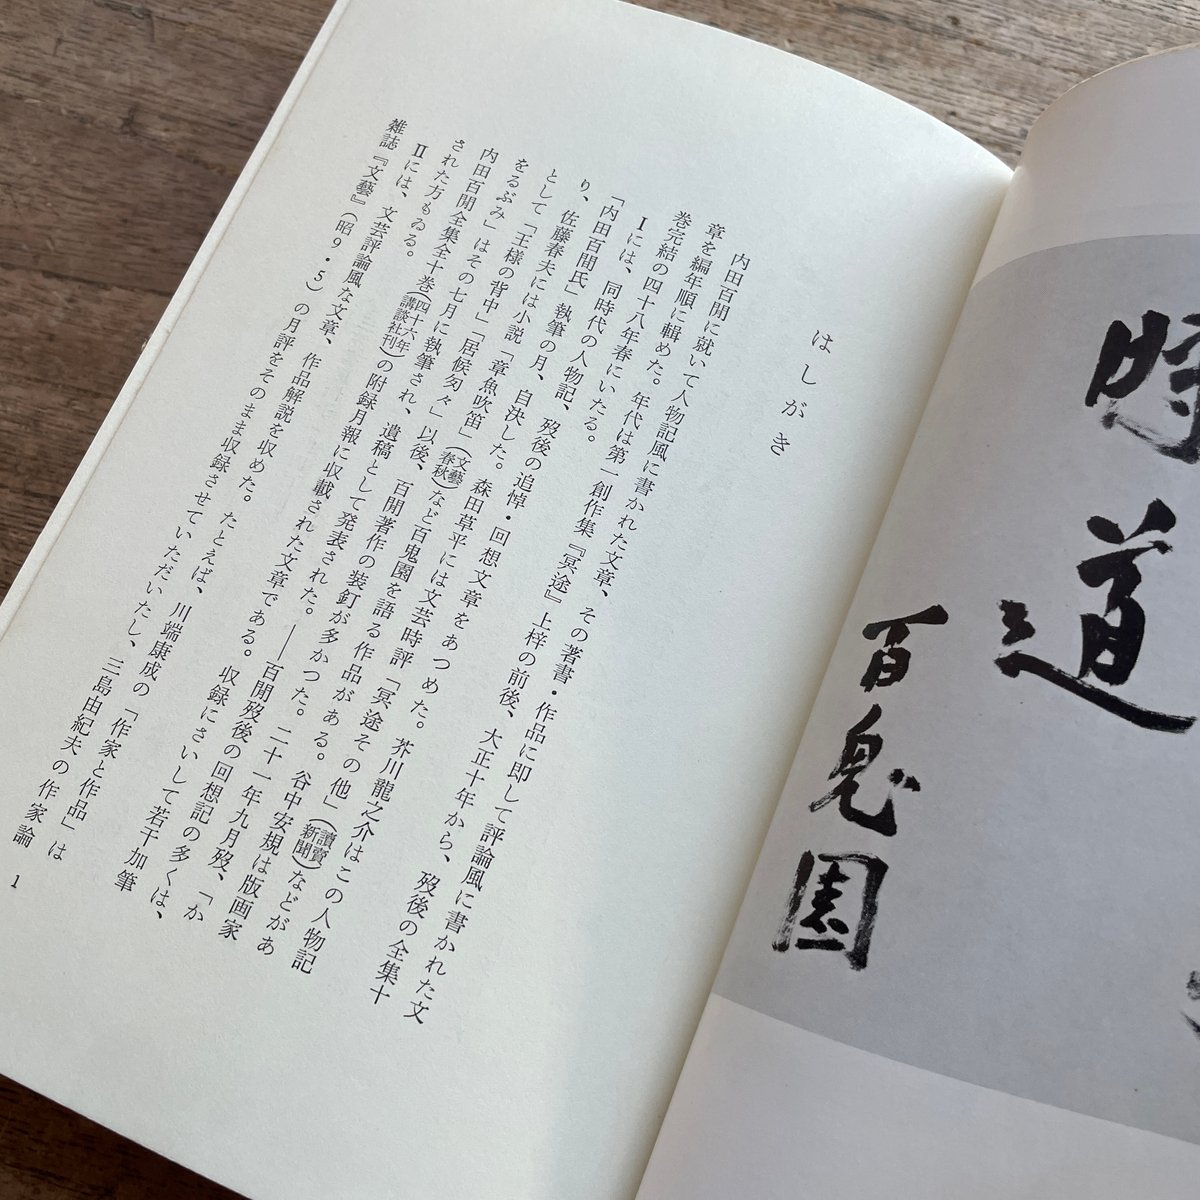 はしがき
内田百閒に就いて人物記風に書かれた文章、その著書・作品に即して評論風に書かれた文
章を編年順に輯めた。年代は第一創作集『冥途』上梓の前後、大正十年から、歿後の全集十
巻完結の四十八年春にいたる。
Ⅰには、同時代の人物記、歿後の追悼・回想文章をあつめた。芥川龍之介はこの人物記
「内田百間氏」執筆の月、自決した。森田草平には文芸時評「冥途その他」(讀賣新聞)などがあ
り、佐藤春夫には小説「章魚吹笛」(文藝春秋)など百鬼園を語る作品がある。谷中安規は版画家
として「王様の背中」「居候匆々」以後、百閒著作の装釘が多かつた。二十一年九月歿、「か
をるぶみ」はその七月に執筆され、遺稿として発表された。――百閒歿後の回想記の多くは、
内田百閒全集全十巻(四十六年講談社刊)の附録月報に収載された文章である。収録にさいして若干加筆
された方もゐる。
Ⅱには、文芸評論風な文章、作品解説を収めた。たとえば、川端康成の「作家と作品」は
雑誌『文藝』(昭9・5)の月評をそのまま収録させていただいたし、三島由紀夫の作家論
1
道
百鬼園